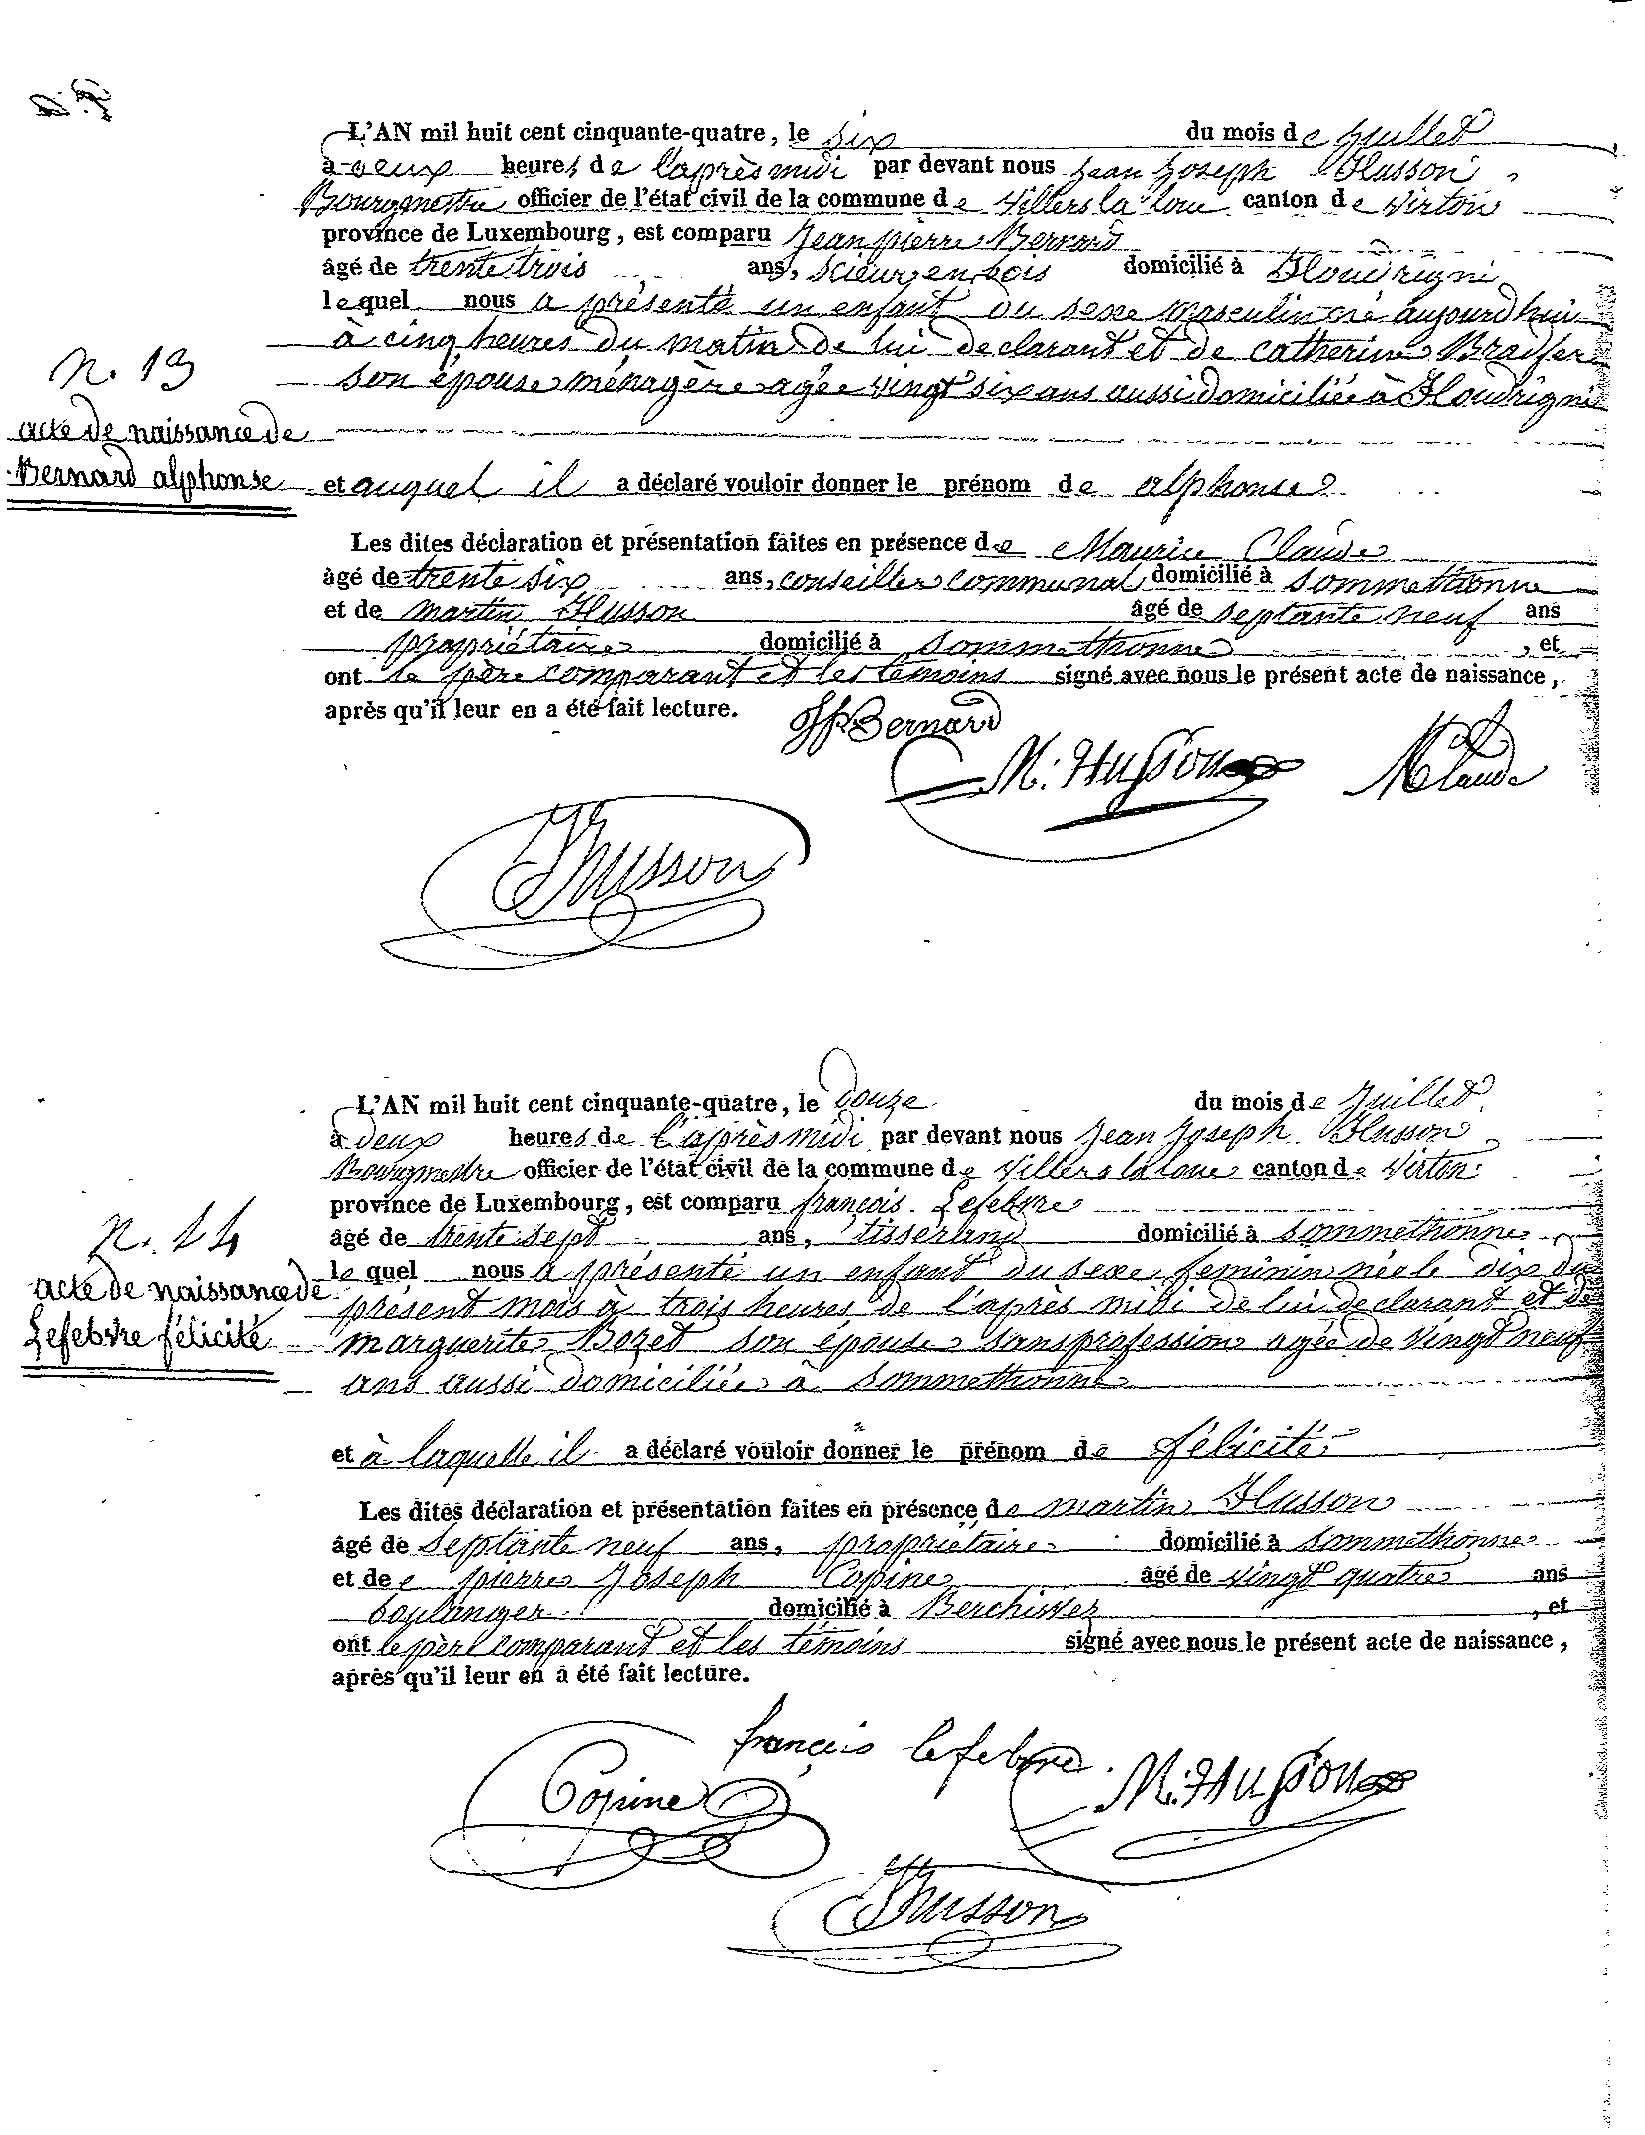 L'AN mil huit cent cinquante-quatre, le six du mois de juillet
à deux heures de l'après midi par devant nous jean joseph Husson
Bourgmestre officier de l'état civil de la commune de Villers la loue canton de Virton
province de Luxembourg, est comparu jean pierre Bernard
âgé de trente trois ans, scieur en bois domicilié à Houdrigni
lequel nous a présenté un enfant du sexe masculin né aujourd'hui
à cinq heures du matin de lui declarant et de catherine
N. 13
son épouse ménagère agée vingt six ans aussi domiciliée à Houdrigni
acte de naissance de
Bernard alphonse
et auquel il a déclaré vouloir donner le prénom de alphonse
Les dites déclaration et présentation faites en présence de Maurice Claude
âgé de trente six ans, conseiller communal domicilié à sommethonne
et de martin Husson âgé de septante neuf ans
propriétaire domicilié à sommethonne , et
ont le père comparant et les témoins signé avec nous le présent acte de naissance,
après qu'il leur en a été fait lecture.
Bernard
M. Husson
Claude
Husson
L'AN mil huit cent cinquante-quatre, le douze du mois de juillet
à deux heures de l'après midi par devant nous jean joseph Husson
Bourgmestre officier de l'état civil de la commune de Villers la loue canton de Virton
province de Luxembourg, est comparu françois Lefebvre
N. 14
âgé de trente sept ans, tisserand domicilié à sommethonne
le quel nous a présenté un enfant du sexe feminin née le dix du
acte de naissance de
présent mois à trois heures de l'après midi de lui declarant et de
Lefebvre félicité
marguerite Bozet son épouse sans profession agée de vingt neuf
ans aussi domiciliée à sommethonne
et à laquelle il a déclaré vouloir donner le prénom de félicité
Les dites déclaration et présentation faites en présence de martin Husson
âgé de septante neuf ans, propriétaire domicilié à sommethonne
et de pierre joseph Copine âgé de vingt quatre ans
boulanger domicilié à Berchiwez , et
ont le père comparant et les témoins signé avec nous le présent acte de naissance,
après qu'il leur en a été fait lecture.
françois lefebvre
Copine
M. Husson
Husson